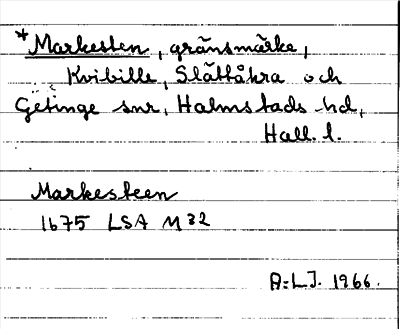 *Markesten, gränsmärke,
Kvibille, Slättåkra och
Getinge snr, Halmstads hd,
Hall. l.
Markesteen
1675 LSA M 32
A:LJ. 1966.